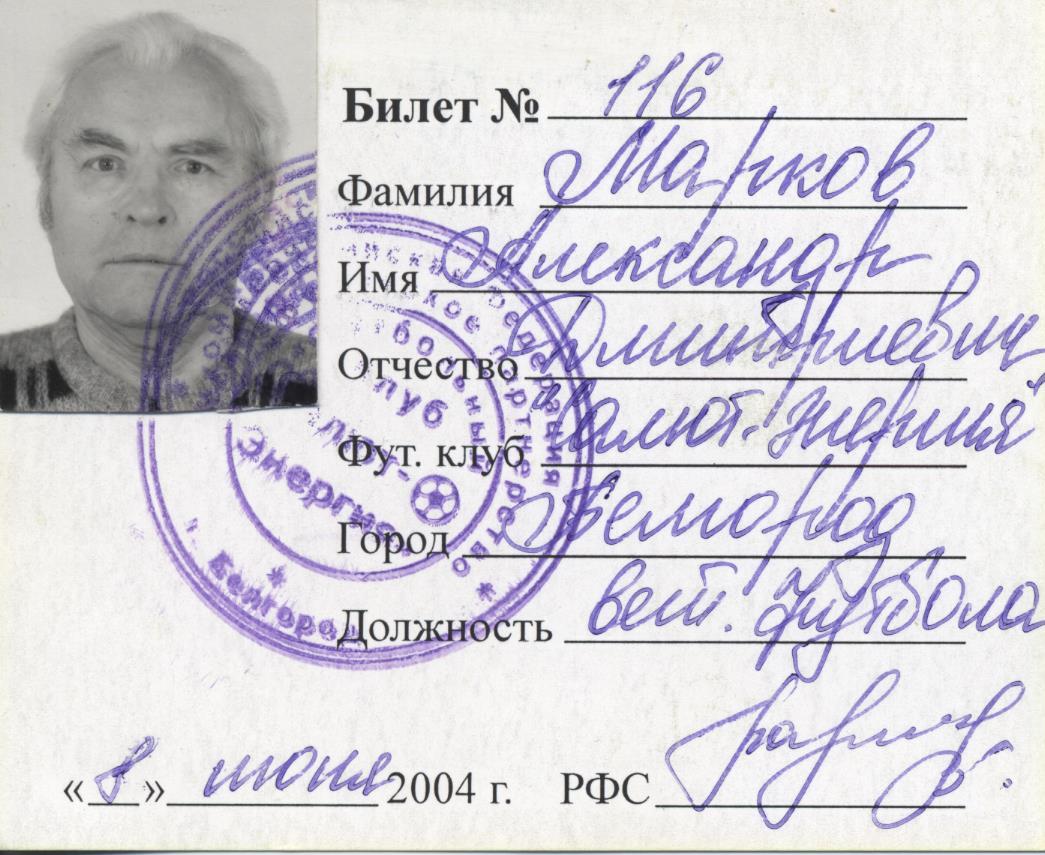 Билет № 116
Фамилия Марков
Имя Александр
Отчество Дмитриевич
Фут. клуб "Салют-Энергия"
Город Белгород
Должность вет. футбола
«8» июня 2004 г. РФС
клуб
Энергия
г. Белгород